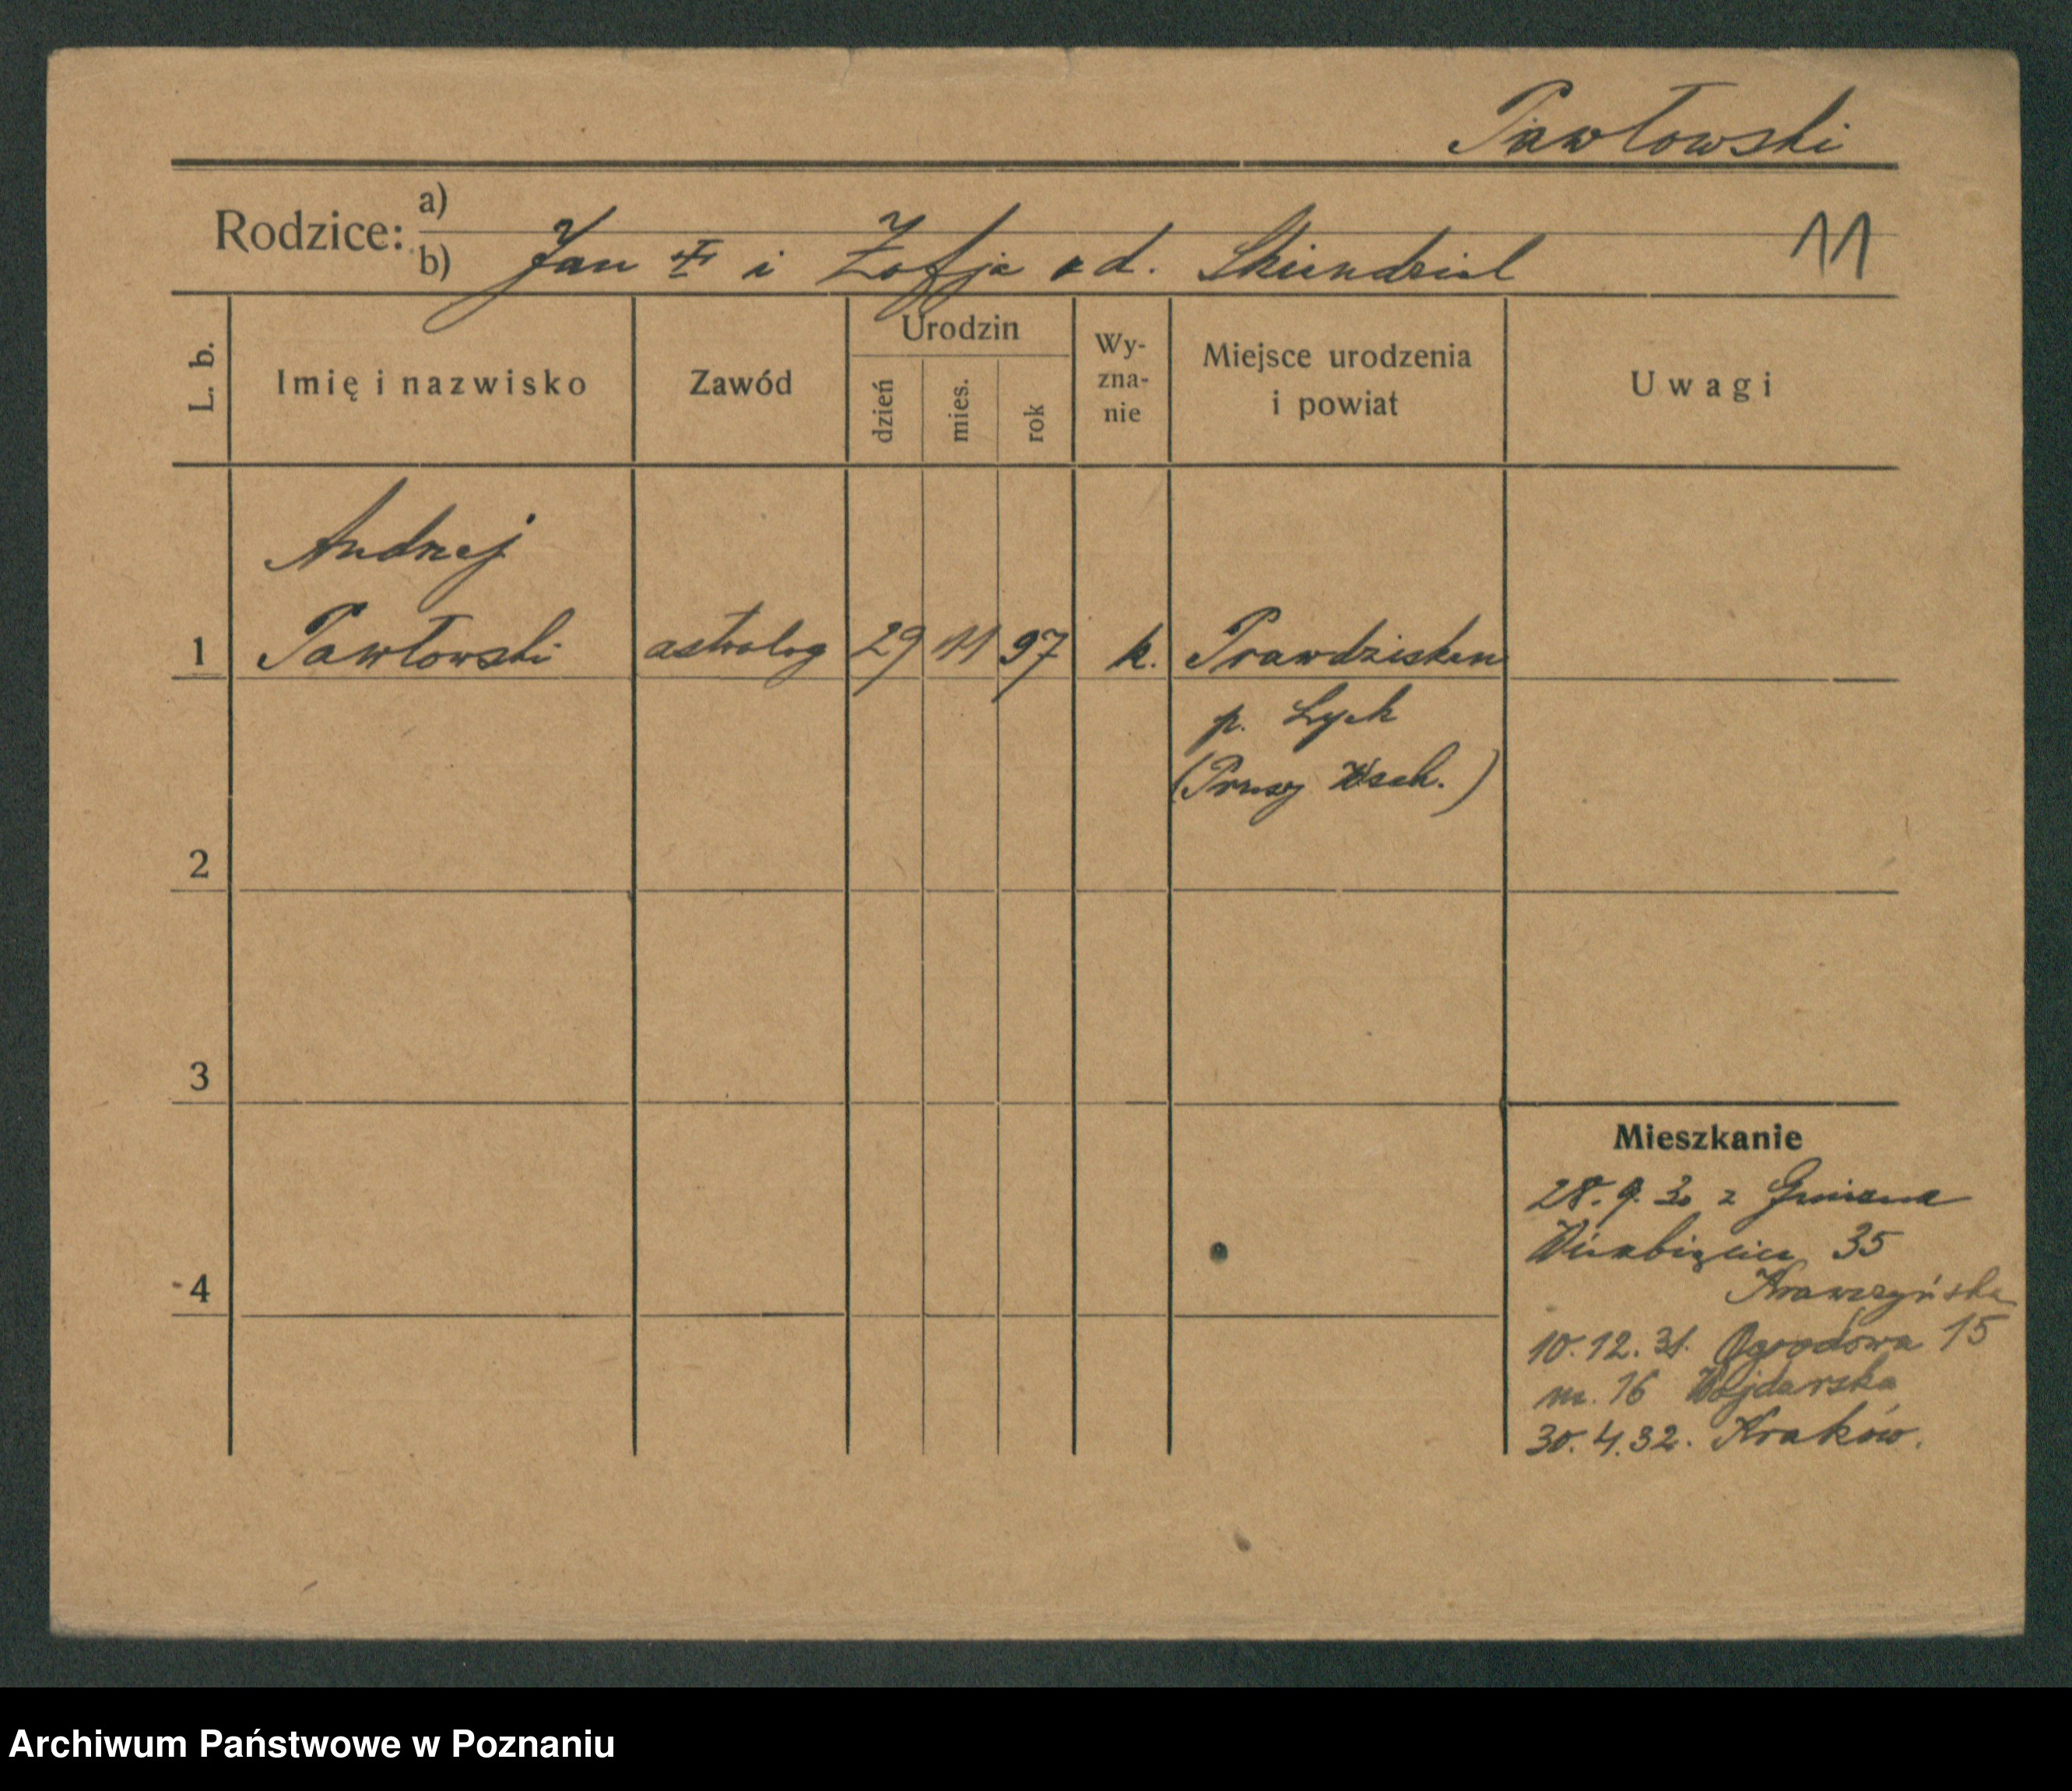 Pawłowski
Rodzice: a)
b) Jan i Zofja Skiendziel
11
L. b.
Imię i nazwisko
Zawód
Urodzin
dzień
mies.
rok
Wy-
zna-
nie
Miejsce urodzenia
i powiat
Uwagi
Andrzej
1 Pawłowski astrolog 29 11 97 k. Prawdzisken
p. Lyck
(Prusy Wsch.)
2
3
4
Mieszkanie
28. 9. 30 z Gniezna
Wierzbięcice 35
Krawczyńska
10. 12. 31. Ogrodowa 15
m. 16 Wojdarska
30. 4. 32. Kraków.
Archiwum Państwowe w Poznaniu